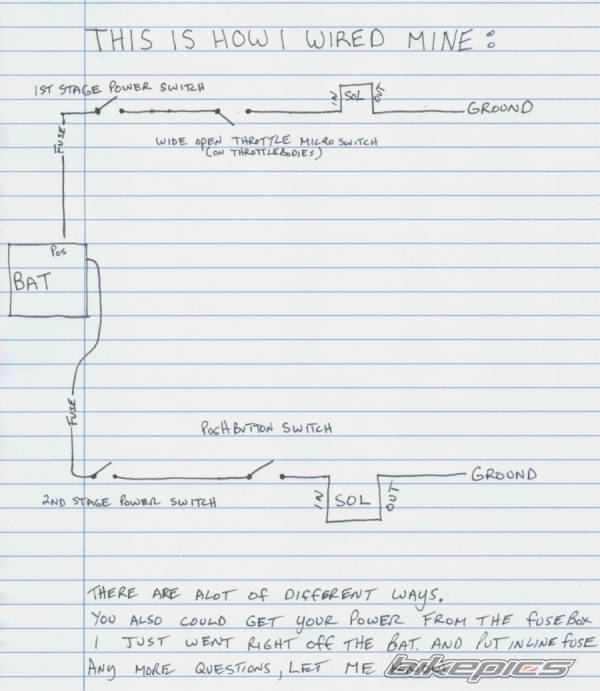 THIS IS HOW I WIRED MINE:
1ST STAGE POWER SWITCH
IN SOL OUT
GROUND
FUSE
WIDE OPEN THROTTLE MICRO SWITCH
(ON THROTTLEBODIES)
POS
BAT
FUSE
PUSHBUTTON SWITCH
GROUND
IN SOL OUT
2ND STAGE POWER SWITCH
THERE ARE ALOT OF DIFFERENT WAYS.
YOU ALSO COULD GET YOUR POWER FROM THE FUSEBOX
I JUST WENT RIGHT OFF THE BAT. AND PUT INLINE FUSE
ANY MORE QUESTIONS, LET ME
bikepics